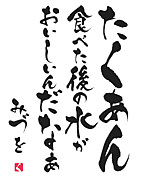 たくあん
食べた後の水が
おいしいんだなぁ
みつを